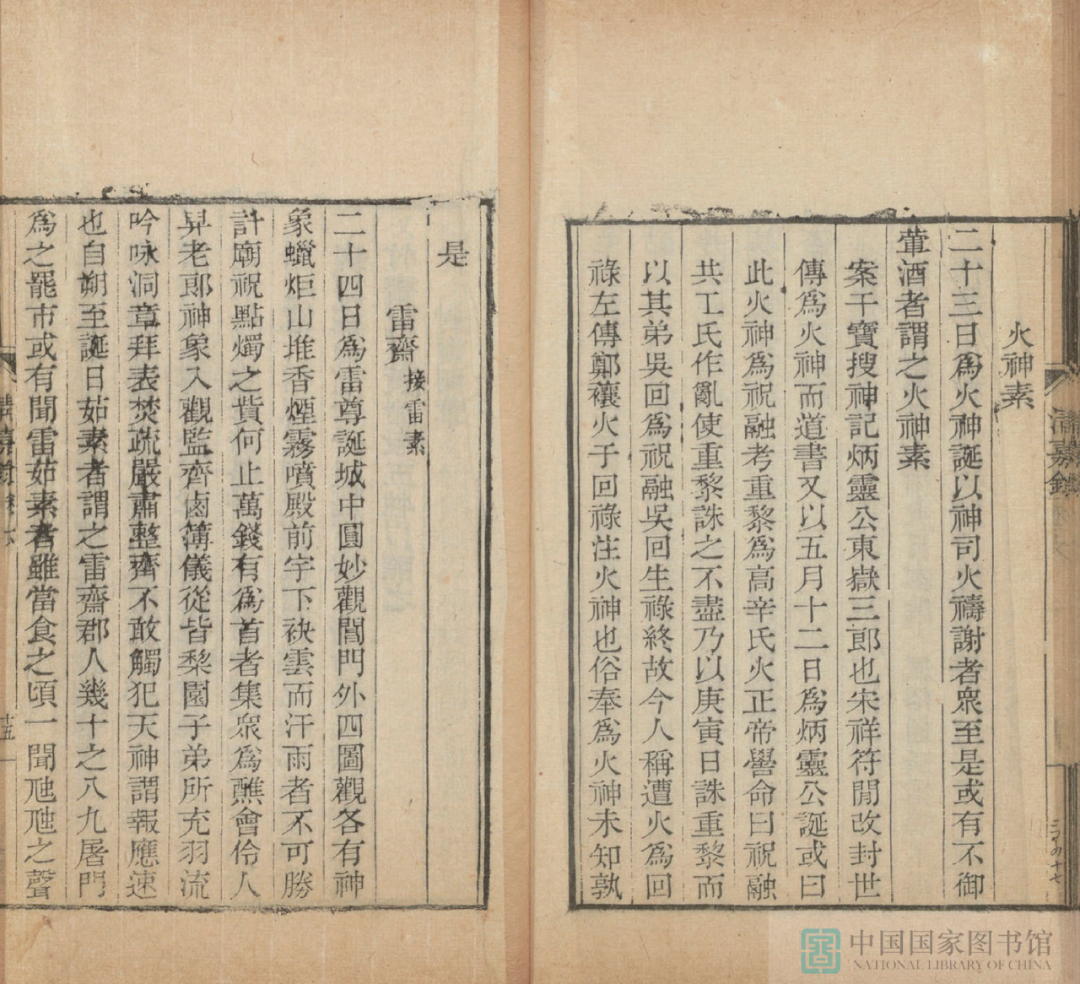 火神素
二十三日爲火神誕以神司火禱謝者衆至是或有不御
葷酒者謂之火神素
案干寶搜神記炳靈公東嶽三郎也宋祥符閒改封世
傳爲火神而道書又以五月十二日爲炳靈公誕或曰
此火神爲祝融考重黎爲高辛氏火正帝嚳命曰祝融
共工氏作亂使重黎誅之不盡乃以庚寅日誅重黎而
以其弟吳回爲祝融吳回生祿終故今人稱遭火爲回
祿左傳鄭禳火子回祿注火神也俗奉爲火神未知孰
清嘉錄
是
雷齋 接雷素
二十四日爲雷尊誕城中圓妙觀閶門外四圖觀各有神
象蠟炬山堆香煙霧噴殿前宇下袂雲而汗雨者不可勝
計廟祝點燭之貲何止萬錢有爲首者集衆爲醮會伶人
舁老郎神象入觀監齊鹵簿儀從皆棃園子弟所充羽流
吟咏洞章拜表焚疏嚴肅整齊不敢觸犯天神謂報應速
也自朔至誕日茹素者謂之雷齋郡人幾十之八九屠門
爲之罷市或有聞雷茹素者雖當食之頃一聞虺虺之聲
十五
中国国家图书馆
NATIONAL LIBRARY OF CHINA